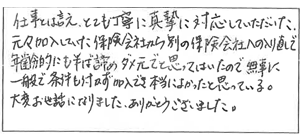 仕事とは言え、とても丁寧に真摯に対応していただいた。
元々加入していた保険会社から別の保険会社への入り直しで
年齢的にも半ば諦めダメ元でと思ってはいたので無事に
一般で条件も付かず加入でき本当によかったと思っている。
大変お世話になりました。ありがとうございました。